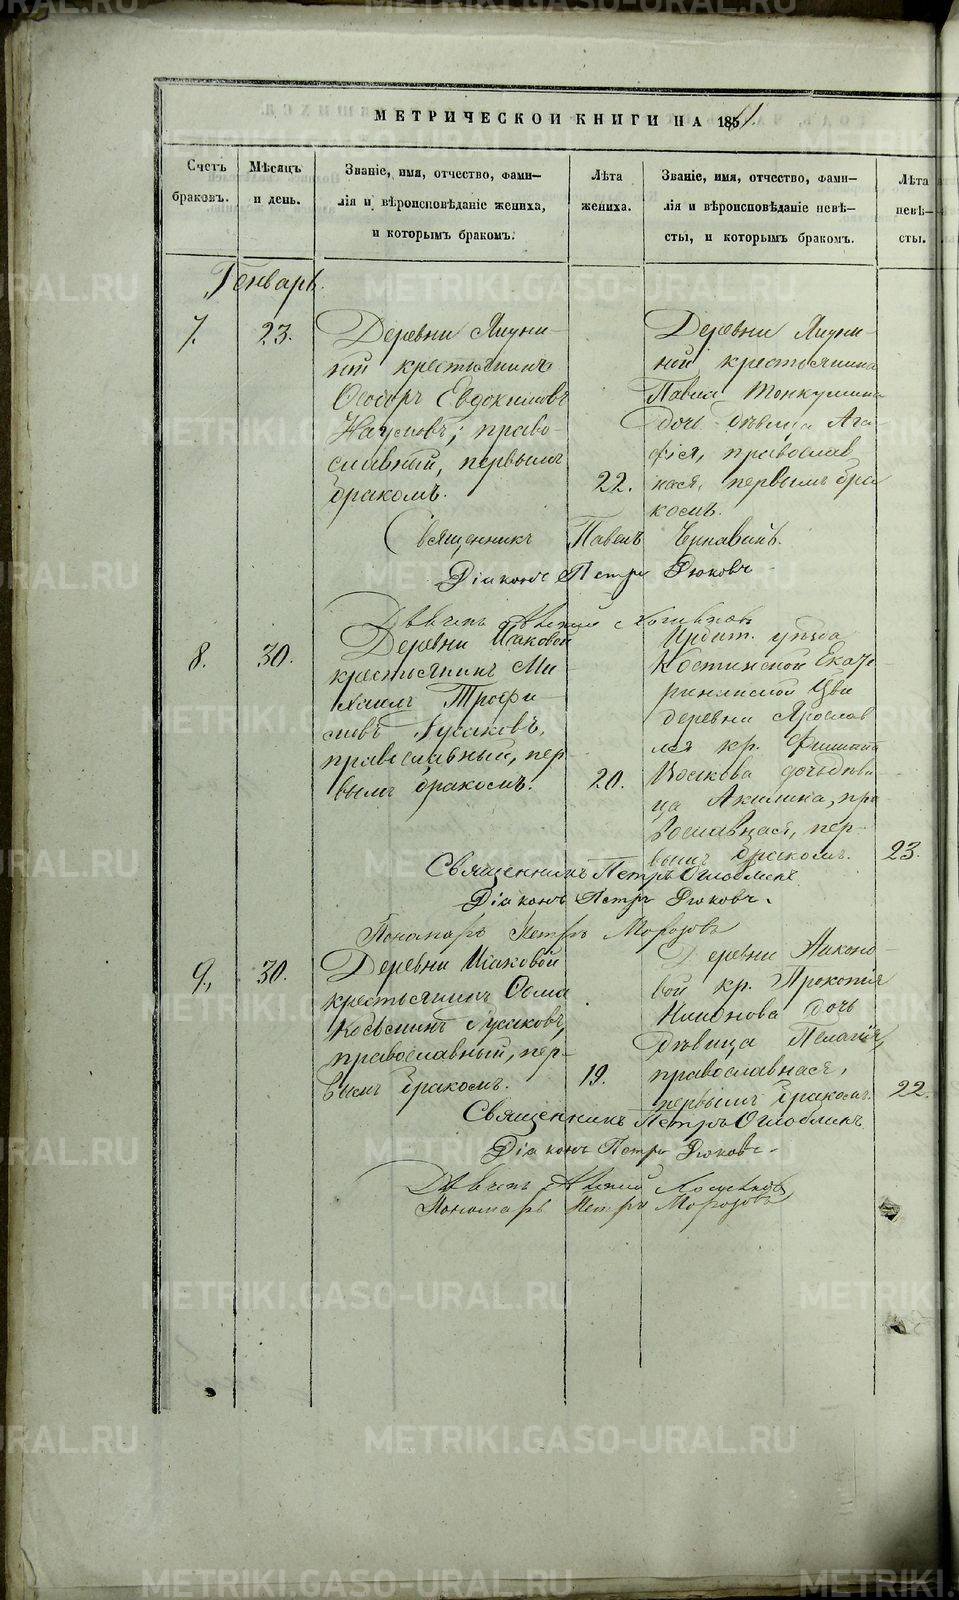 МЕТРИЧЕСКОЙ КНИГИ НА 1861
Счетъ браковъ.
Мѣсяцъ и день.
Званіе, имя, отчество, фами-
лія и вѣроисповѣданіе жениха,
и которымъ бракомъ.
Лѣта жениха.
Званіе, имя, отчество, фами-
лія и вѣроисповѣданіе невѣ-
сты, и которымъ бракомъ.
Лѣта невѣ-
сты.
Генварь.
7.
23.
Деревни
крестьянинъ
Ѳеодоръ Евдокимовъ
Наумовъ, право-
славный, первымъ
бракомъ.
22.
Деревни
ной крестьянина
Павла
дочь дѣвица Ага-
фія, православ
ная, первымъ бра
комъ.
Священникъ Павелъ Чернавинъ.
Діаконъ Петръ Дюковъ.
8.
30.
Деревни Исаковой
крестьянинъ Ми
хаилъ Трофи
мовъ Русаковъ,
православный, пер
вымъ бракомъ.
20.
Ирбит. уѣзда
Костинской Екате
рининской Цви
деревни Ярослав
ля кр. Филиппа
Воинкова дочь дѣви
ца Акилина, пра
вославная, пер-
вымъ бракомъ.
23.
Священникъ Петръ Оглоблинъ
Діаконъ Петръ Дюковъ.
Пономарь Петръ Морозовъ
9.
30.
Деревни Исаковой
крестьянинъ Ѳома
Козьминъ Русаковъ,
православный, пер-
вымъ бракомъ.
19.
Деревни Никоно-
вой кр. Прокопія
Никонова дочь
дѣвица Пелагія,
православная,
первымъ бракомъ.
22.
Священникъ Петръ Оглоблинъ
Діаконъ Петръ Дюковъ.
Пономарь Петръ Морозовъ
METRIKI.GASO-URAL.RU